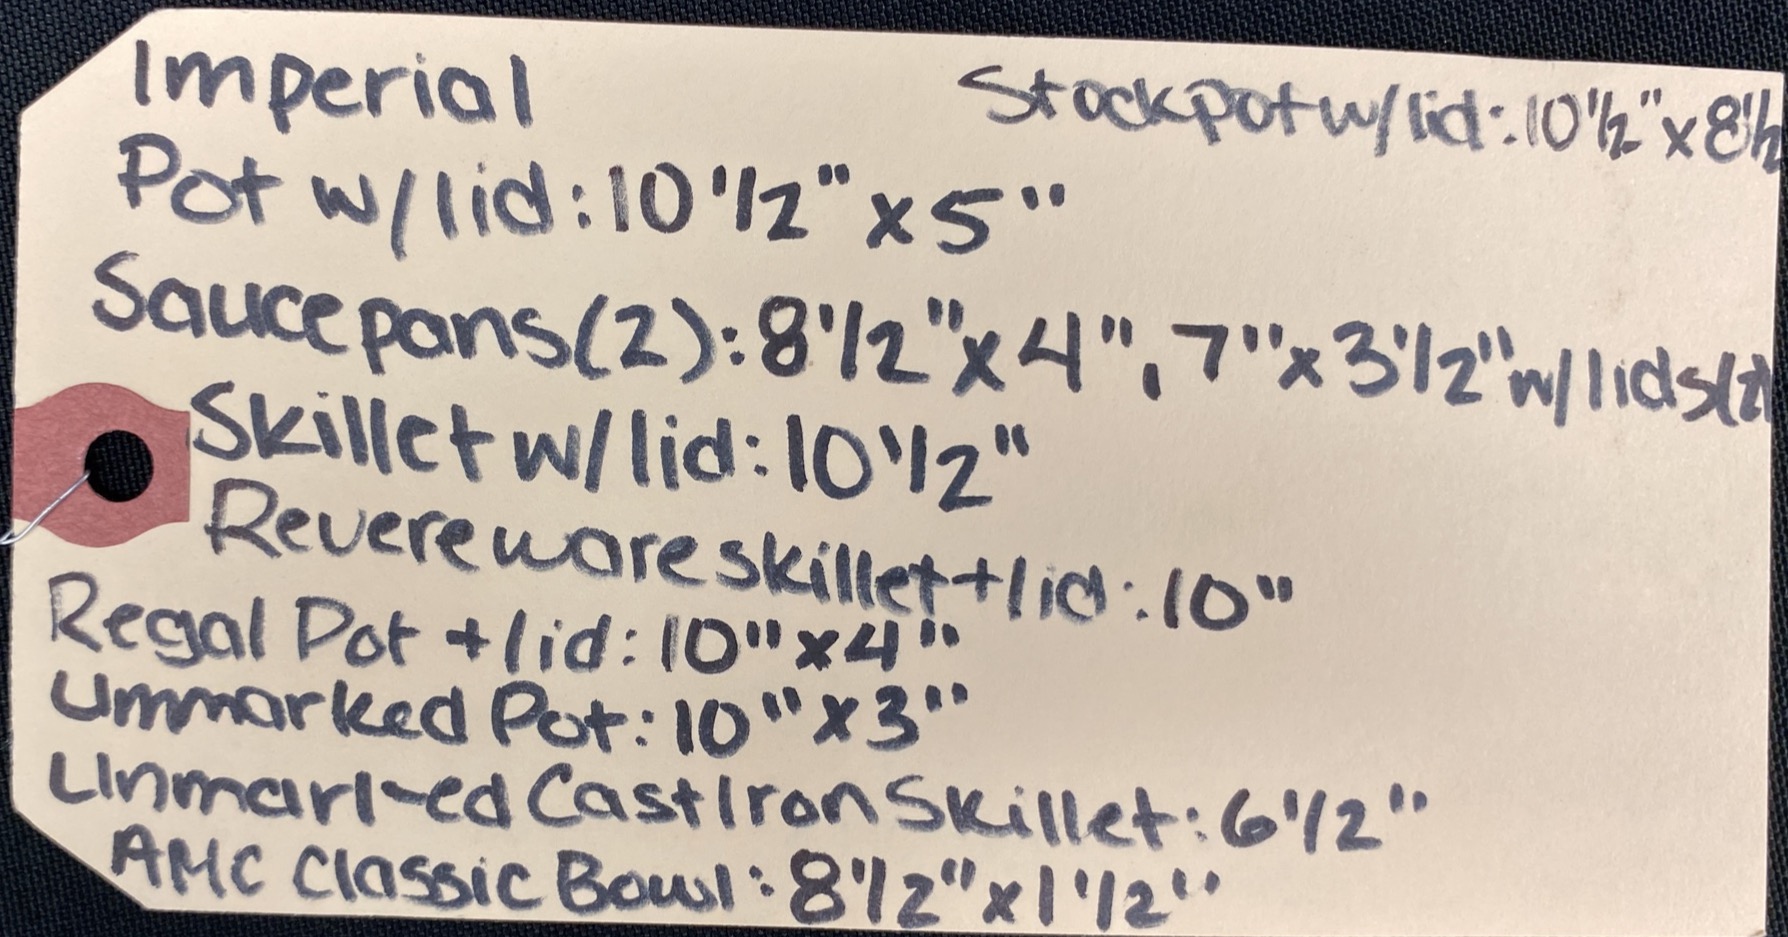 Imperial
Stockpot w/lid: 10 1/2" x 8 1/2
Pot w/lid: 10 1/2" x 5"
Saucepans(2): 8 1/2" x 4", 7" x 3 1/2" w/lids(2)
Skillet w/lid: 10 1/2"
Revereware skillet + lid: 10"
Regal Pot + lid: 10" x 4"
Unmarked Pot: 10" x 3"
Unmarked Cast Iron Skillet: 6 1/2"
AMC Classic Bowl: 8 1/2" x 1 1/2"